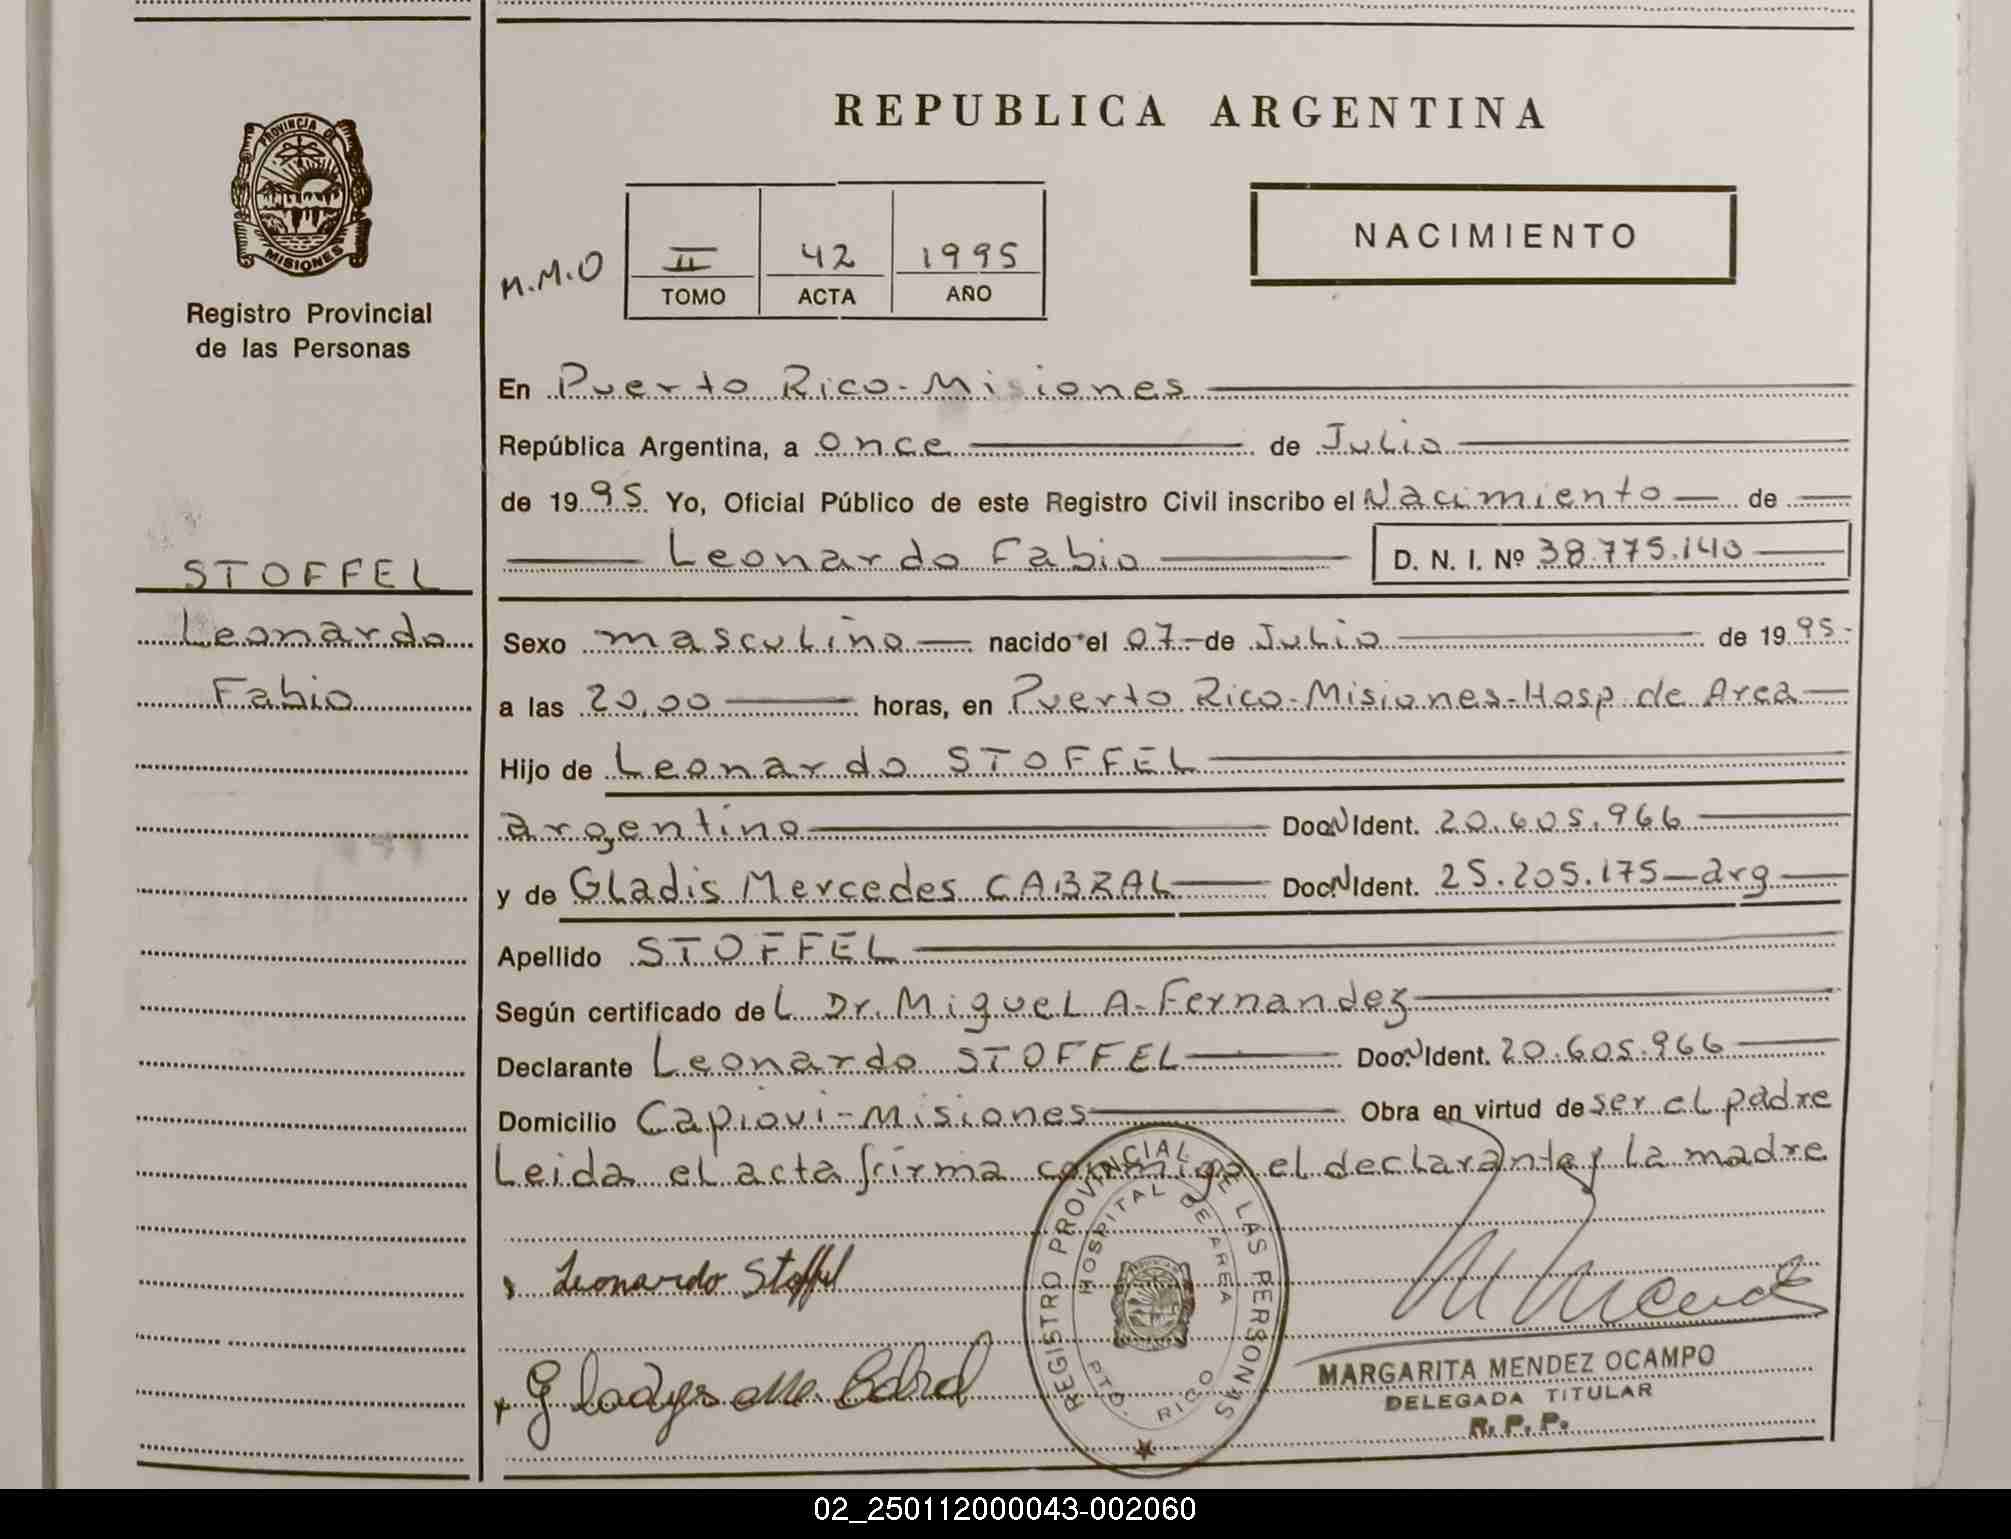 REPUBLICA ARGENTINA
PROVINCIA DE
MISIONES
Registro Provincial
de las Personas
M.M.O
II 42 1995
TOMO ACTA AÑO
NACIMIENTO
STOFFEL
Leonardo
Fabio
En Puerto Rico-Misiones
República Argentina, a once de Julio
de 1995 Yo, Oficial Público de este Registro Civil inscribo el Nacimiento de
Leonardo Fabio D. N. I. Nº 38.775.140
Sexo masculino nacido el 07 de Julio de 1995
a las 20,00 horas, en Puerto Rico-Misiones-Hosp. de Area
Hijo de Leonardo STOFFEL
argentino Doc. N Ident. 20.605.966
y de Gladis Mercedes CABRAL Doc. N Ident. 25.205.175-arg
Apellido STOFFEL
Según certificado del Dr. Miguel A. Fernandez
Declarante Leonardo STOFFEL Doc. N Ident. 20.605.966
Domicilio Capiovi-Misiones Obra en virtud de ser el padre
Leida el acta firma conmigo el declarante y la madre
Leonardo Stoffel
Gladys Me. Cabral
REGISTRO PROVINCIAL DE LAS PERSONAS
HOSPITAL DE AREA
PTO. RICO
MARGARITA MENDEZ OCAMPO
DELEGADA TITULAR
R.P.P.
02_250112000043-002060